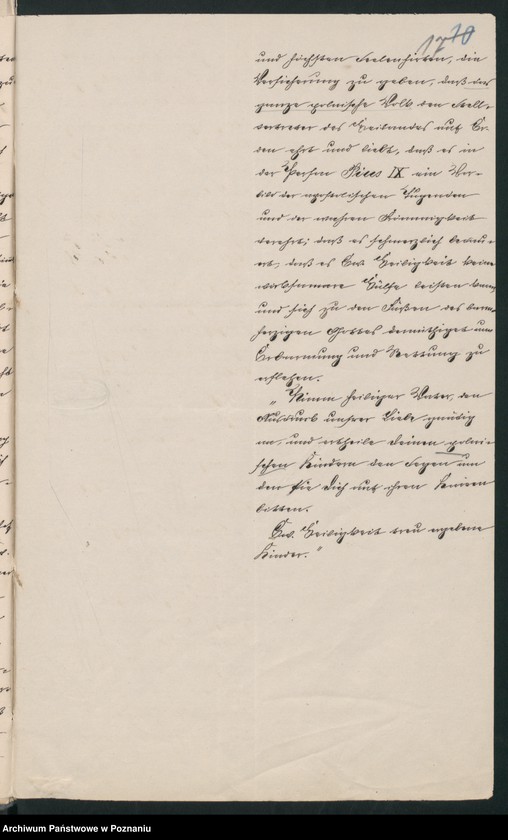 17 70
und höchsten Seelenhirten, die
Versicherung zu geben, daß das
ganze polnische Volk den Stell-
vertreter des Heilandes auf Er-
den ehrt und liebt, daß es in
der Person Pius IX ein Vor-
bild der apostolischen Tugenden
und der wahren Frömmigkeit
verehrt; daß es schmerzlich bedau-
ert, daß es Ew. Heiligkeit keine
wirksamere Hülfe leisten kann
und sich zu den Füßen des barm-
herzigen Gottes demüthiget um
Erbarmung und Rettung zu
erflehen.
„Nimm heiliger Vater, den
Ausdruck unsrer Liebe gnädig
an, und ertheile Deinen polni-
schen Kindern den Segen um
den sie Dich auf ihren Knieen
bitten.
Ew. Heiligkeit treu ergebene
Kinder."
Archiwum Państwowe w Poznaniu